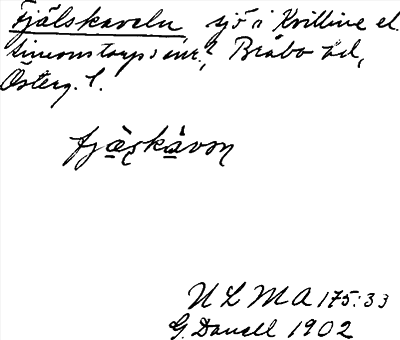 Fjälskaveln sjö i Kvillinge el.
Simonstorps snr?, Bråbo hd,
Österg. l.
fjæ̀skàvon
ULMA 175:33
G. Danell 1902